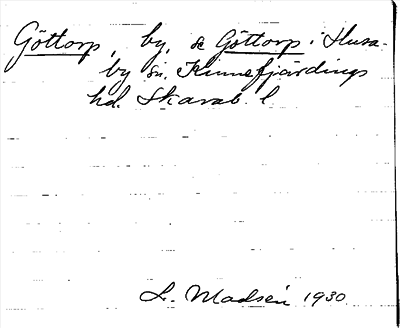 Göttorp, by, se Göttorp i Husa-
by sn. Kinnefjärdings
hd. Skarab. l
L. Madsén 1930